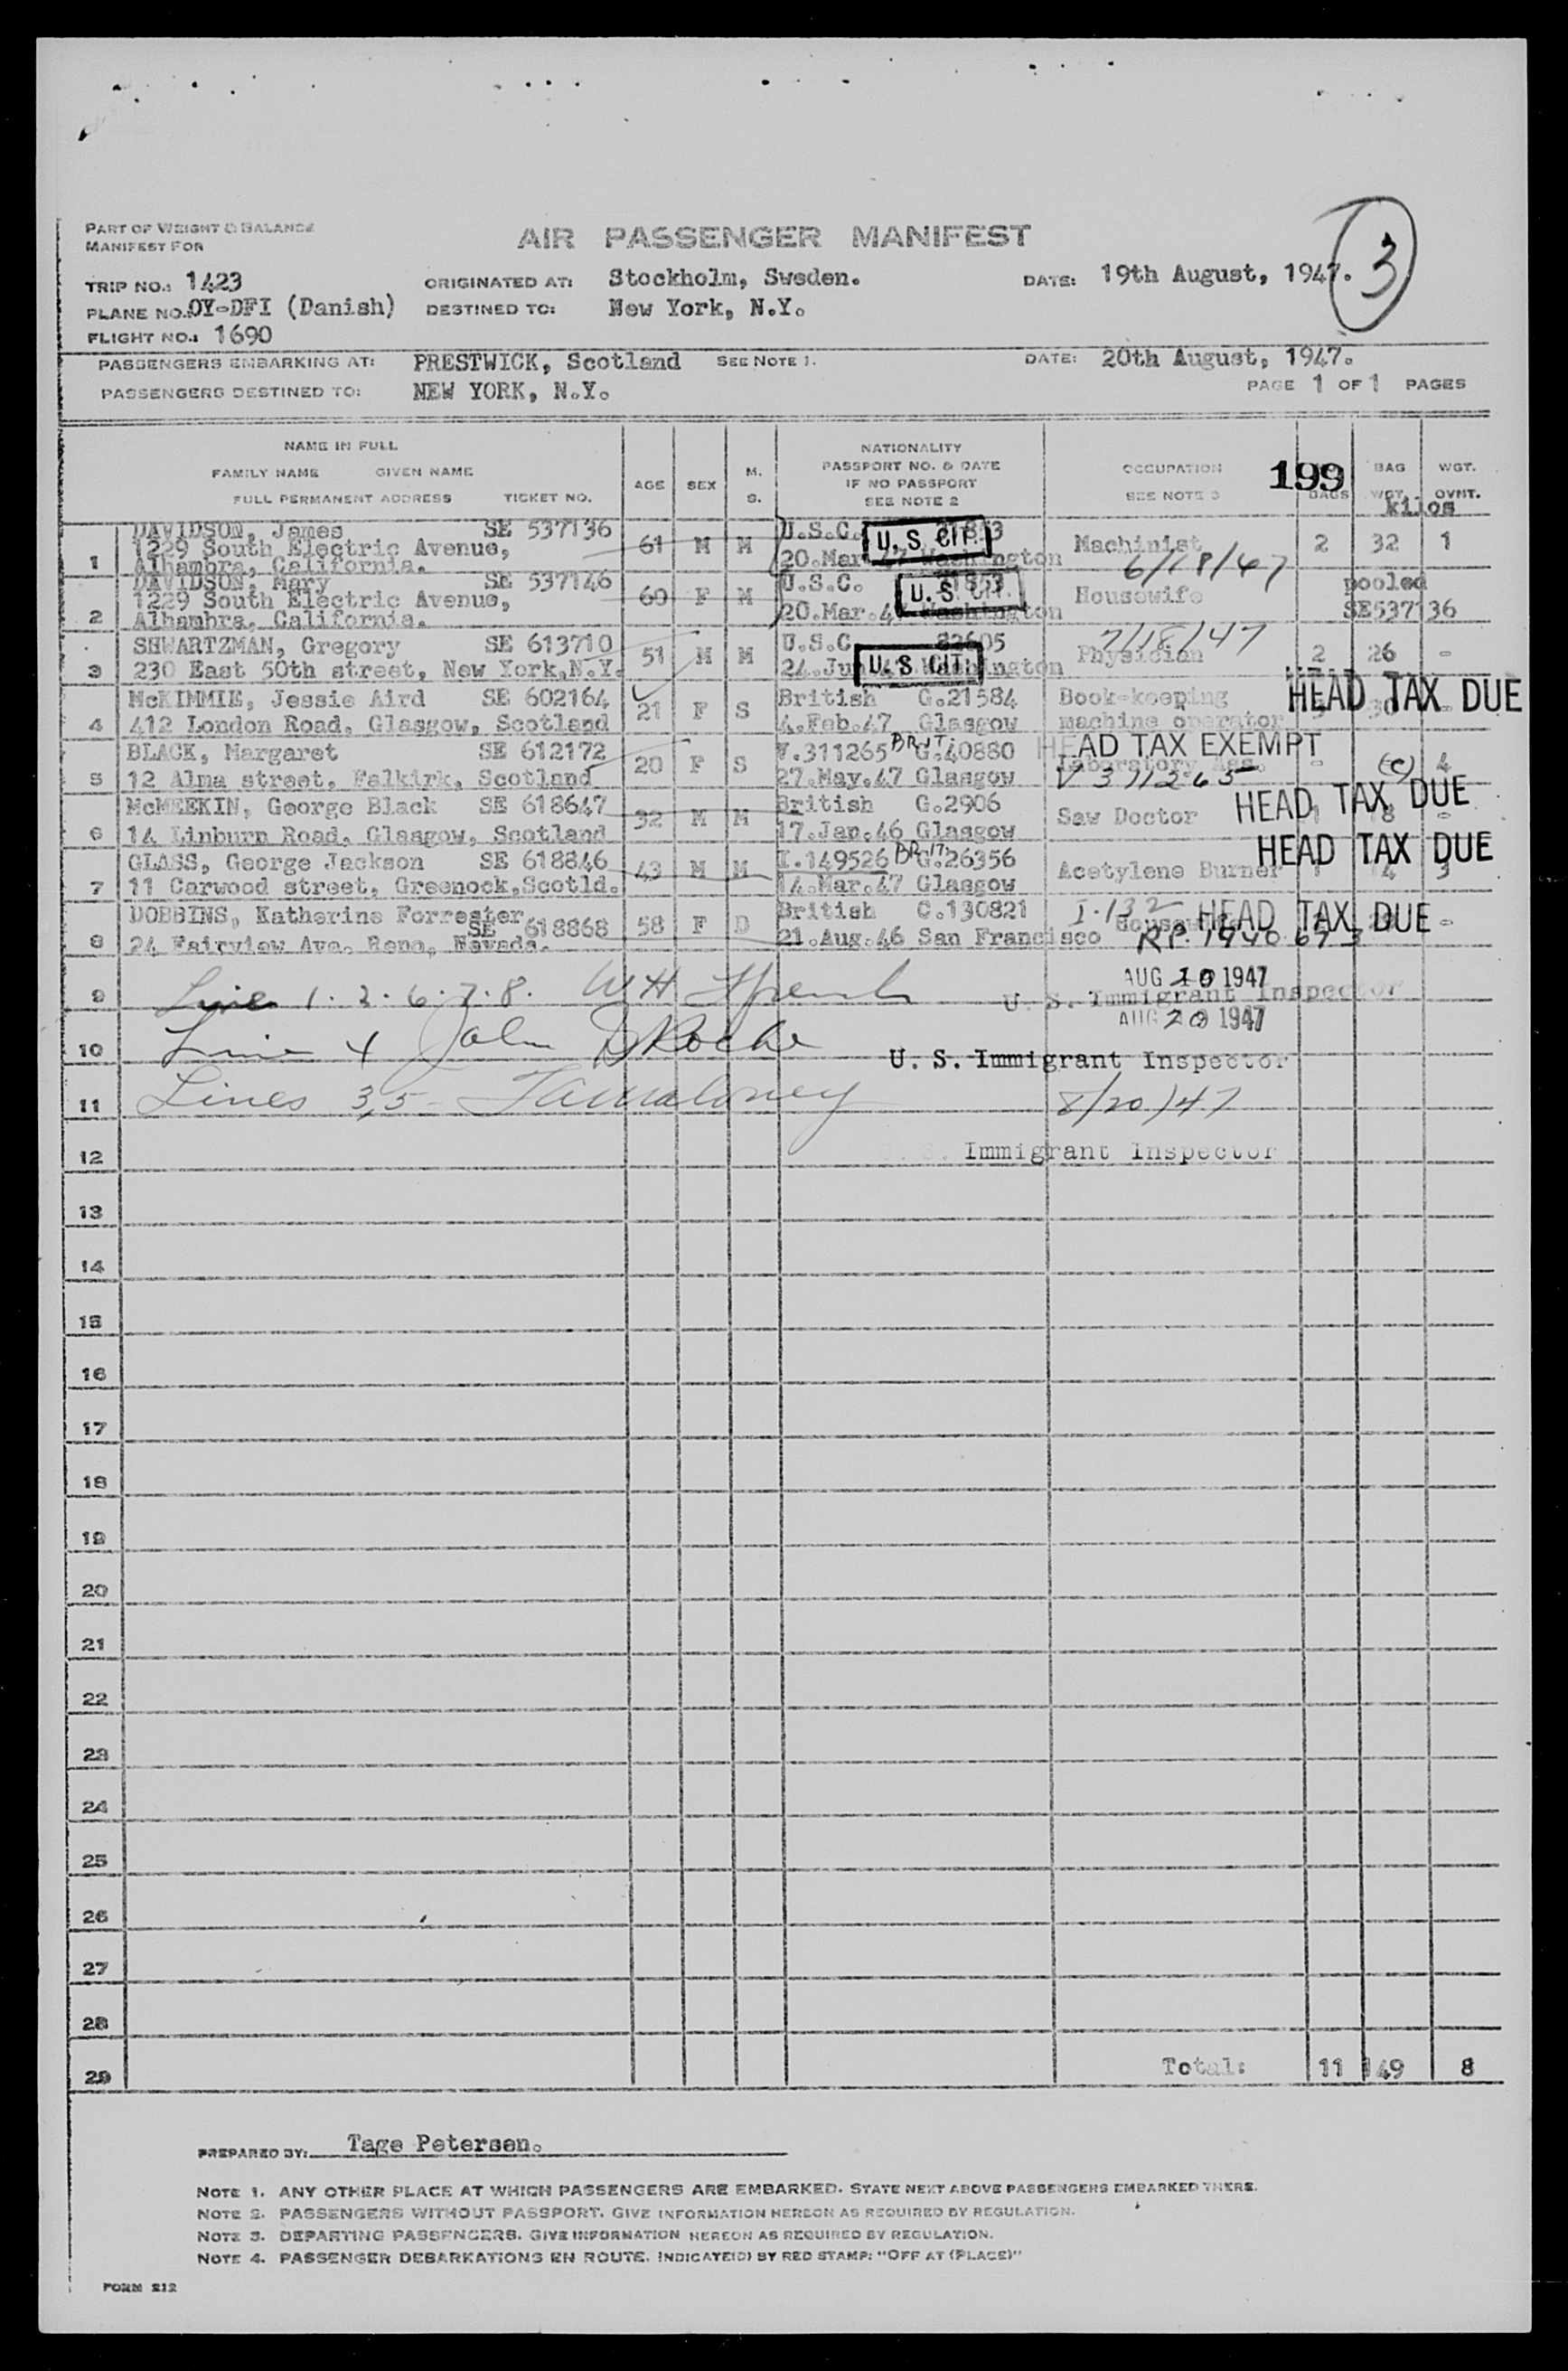 PART OF WEIGHT & BALANCE
MANIFEST FOR
AIR PASSENGER MANIFEST
3
TRIP NO.: 1423 ORIGINATED AT: Stockholm, Sweden. DATE: 19th August, 1947.
PLANE NO.: OY-DFI (Danish) DESTINED TO: New York, N.Y.
FLIGHT NO.: 1690
PASSENGERS EMBARKING AT: PRESTWICK, Scotland SEE NOTE 1. DATE: 20th August, 1947.
PASSENGERS DESTINED TO: NEW YORK, N.Y. PAGE 1 OF 1 PAGES
NAME IN FULL
FAMILY NAME GIVEN NAME
FULL PERMANENT ADDRESS TICKET NO.
AGE SEX M. S.
NATIONALITY
PASSPORT NO. & DATE
IF NO PASSPORT
SEE NOTE 2
OCCUPATION
SEE NOTE 3
199
BAGS BAG WGT. WGT. OVNT.
kilos
1 DAVIDSON, James SE 537136 61 M M U.S.C. Machinist 2 32 1
1229 South Electric Avenue, U.S. CIT.
Alhambra, California. 20.Mar.47 Washington 6/18/47
2 DAVIDSON, Mary SE 537146 60 F M U.S.C. Housewife pooled
1229 South Electric Avenue, U.S. CIT.
Alhambra, California. 20.Mar.47 Washington SE537136
3 SHWARTZMAN, Gregory SE 613710 51 M M U.S.C. 82605 Physician 7/18/47 2 26 -
230 East 50th street, New York,N.Y. 24.Jun. Washington U.S. CIT.
4 McKIMMIE, Jessie Aird SE 602164 21 F S British G.21584 Book-keeping HEAD TAX DUE
412 London Road, Glasgow, Scotland 4.Feb.47 Glasgow machine operator
5 BLACK, Margaret SE 612172 20 F S V.311265 BRIT. G.40880 HEAD TAX EXEMPT
12 Alma street, Falkirk, Scotland 27.May.47 Glasgow Laboratory Ass. V 311265 - (c) 4
6 McMEEKIN, George Black SE 618647 32 M M British G.2906 Saw Doctor HEAD TAX DUE 8 -
14 Linburn Road, Glasgow, Scotland 17.Jan.46 Glasgow
7 GLASS, George Jackson SE 618846 43 M M I.149526 BRIT. G.26356 Acetylene Burner HEAD TAX DUE 1 14 3
11 Carwood street, Greenock,Scotld. 14.Mar.47 Glasgow
8 DOBBINS, Katherine Forrester SE 618868 58 F D British C.130821 I-132 HEAD TAX DUE -
24 Fairview Ave. Reno, Nevada. 21.Aug.46 San Francisco R.P.
9 Line 1. 2. 6. 7. 8. W H French AUG 20 1947
U. S. Immigrant Inspector
AUG 20 1947
10 Line 4 John D Roche U. S. Immigrant Inspector
11 Lines 3,5 8/20/47
12 Immigrant Inspector
13
14
15
16
17
18
19
20
21
22
23
24
25
26
27
28
29 Total: 11 149 8
PREPARED BY: Tage Petersen.
NOTE 1. ANY OTHER PLACE AT WHICH PASSENGERS ARE EMBARKED. STATE NEXT ABOVE PASSENGERS EMBARKED THERE.
NOTE 2. PASSENGERS WITHOUT PASSPORT. GIVE INFORMATION HEREON AS REQUIRED BY REGULATION.
NOTE 3. DEPARTING PASSENGERS. GIVE INFORMATION HEREON AS REQUIRED BY REGULATION.
NOTE 4. PASSENGER DEBARKATIONS EN ROUTE. INDICATE(D) BY RED STAMP: "OFF AT (PLACE)"
FORM 212